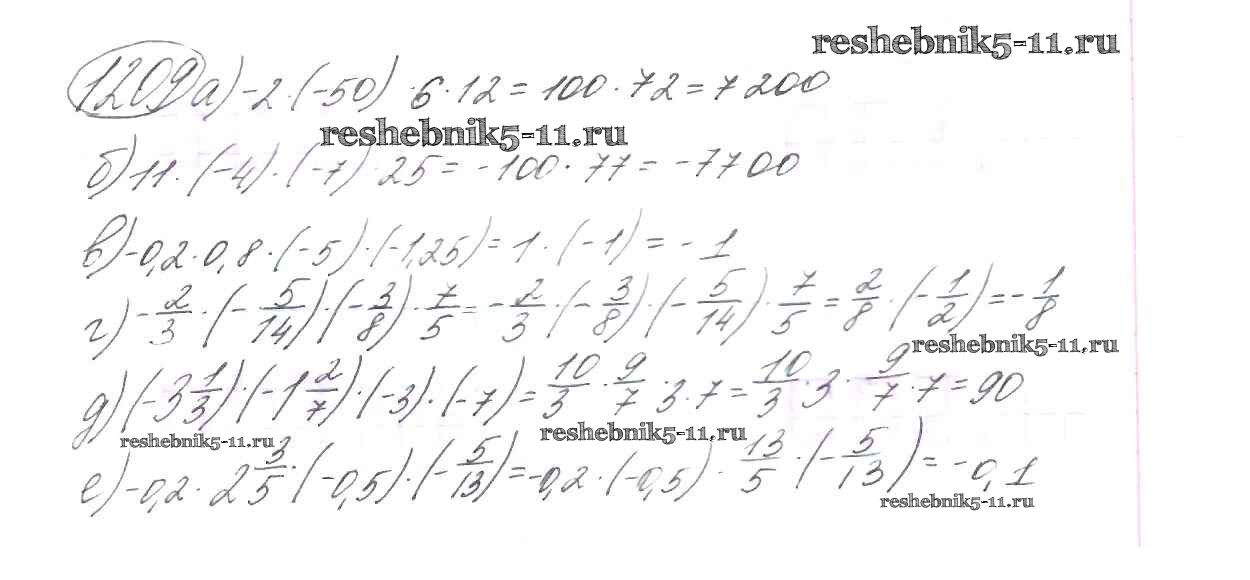 reshebnik5-11.ru
1209 а) -2·(-50)·6·12=100·72=7200
reshebnik5-11.ru
б) 11·(-4)·(-7)·25=-100·77=-7700
в) -0,2·0,8·(-5)·(-1,25)=1·(-1)=-1
г) -2/3·(-5/14)·(-3/8)·7/5=-2/3·(-3/8)·(-5/14)·7/5=2/8·(-1/2)=-1/8
reshebnik5-11.ru
д) (-3 1/3)·(-1 2/7)·(-3)·(-7)=10/3·9/7·3·7=10/3·3·9/7·7=90
reshebnik5-11.ru
reshebnik5-11.ru
е) -0,2·2 3/5·(-0,5)·(-5/13)=-0,2·(-0,5)·13/5·(-5/13)=-0,1
reshebnik5-11.ru